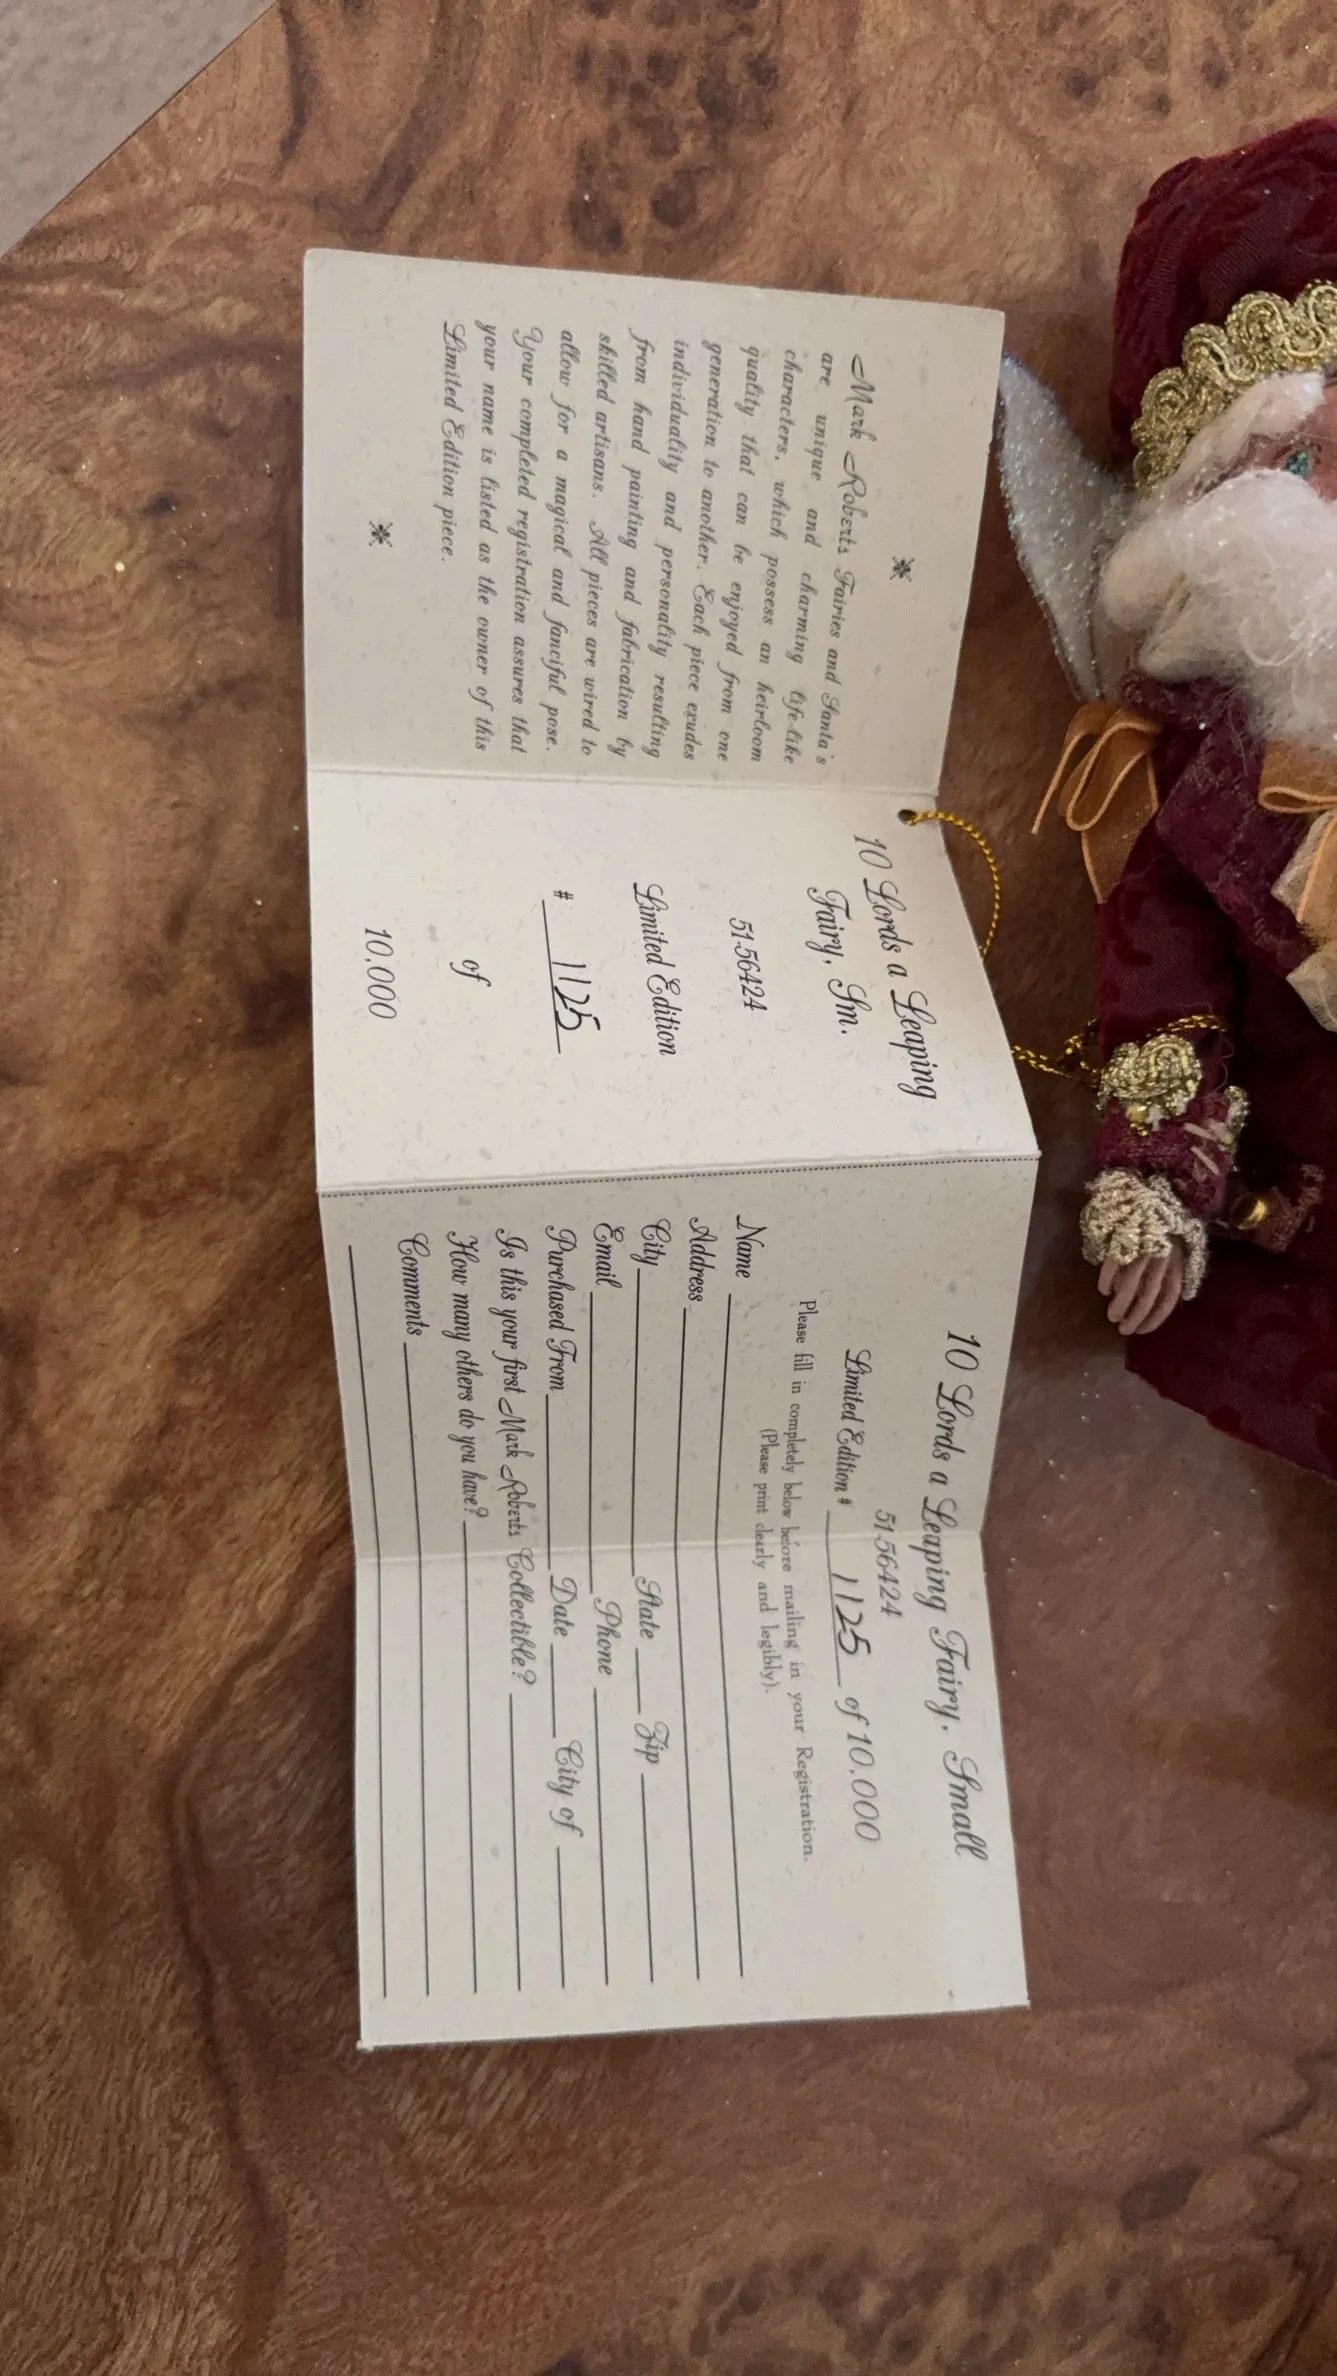 Mark Roberts Fairies and Santa's
are unique and charming life-like
characters, which possess an heirloom
quality that can be enjoyed from one
generation to another. Each piece exudes
individuality and personality resulting
from hand painting and fabrication by
skilled artisans. All pieces are wired to
allow for a magical and fanciful pose.
Your completed registration assures that
your name is listed as the owner of this
Limited Edition piece.
10 Lords a Leaping
Fairy, Sm.
51-56424
Limited Edition
# 1125
of
10,000
10 Lords a Leaping Fairy, Small
51-56424
Limited Edition # 1125 of 10,000
Please fill in completely below before mailing in your Registration.
(Please print clearly and legibly).
Name
Address
City State Zip
Email Phone
Purchased From Date City of
Is this your first Mark Roberts Collectible?
How many others do you have?
Comments